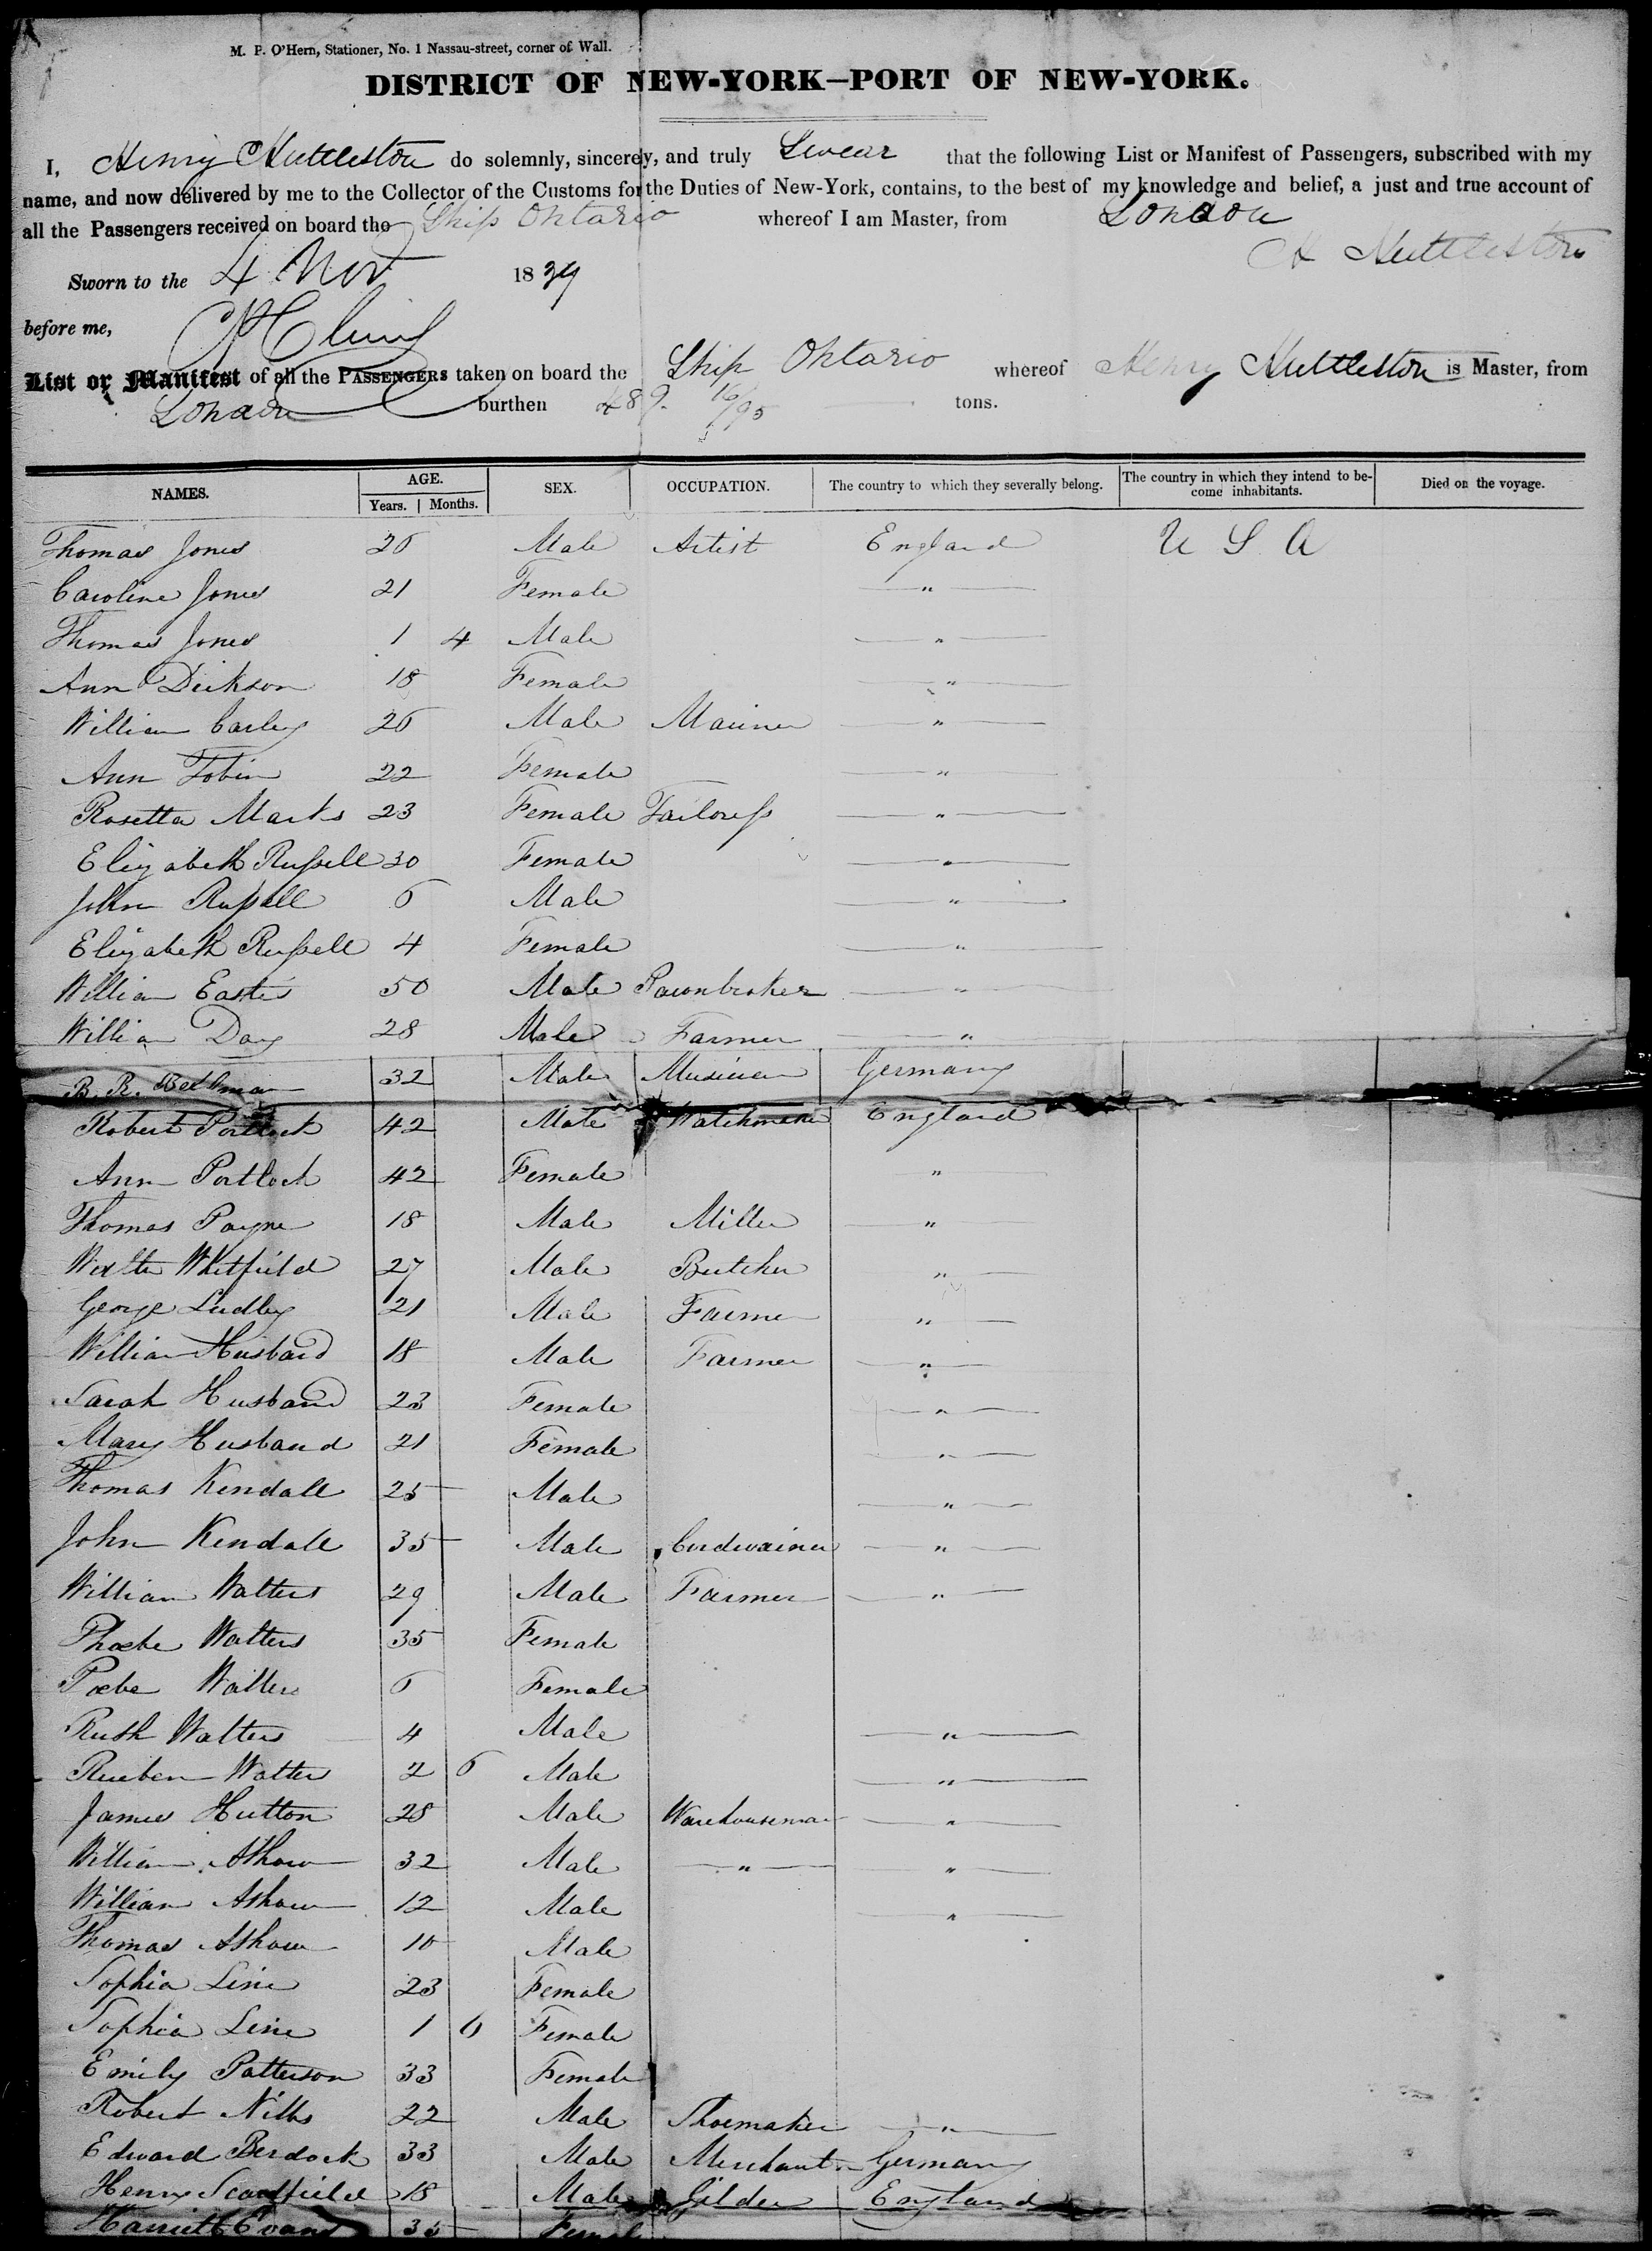 M. P. O'Hern, Stationer, No. 1 Nassau-street, corner of Wall.
DISTRICT OF NEW-YORK—PORT OF NEW-YORK.
I, Henry Huttleston do solemnly, sincerely, and truly Swear that the following List or Manifest of Passengers, subscribed with my
name, and now delivered by me to the Collector of the Customs for the Duties of New-York, contains, to the best of my knowledge and belief, a just and true account of
all the Passengers received on board the Ship Ontario whereof I am Master, from London
H Huttleston
Sworn to the 4 Nov 1839
before me,
List or Manifest of all the PASSENGERS taken on board the Ship Ontario whereof Henry Huttleston is Master, from
London burthen 489 16/95 tons.
NAMES. AGE. SEX. OCCUPATION. The country to which they severally belong. The country in which they intend to be- Died on the voyage.
Years. Months. come inhabitants.
Thomas Jones 26 Male Artist England U S A
Caroline Jones 21 Female "
Thomas Jones 1 4 Male "
Ann Dickson 18 Female "
William Carley 26 Male Mariner "
Ann Tobin 22 Female "
Rosetta Marks 23 Female Tailoress "
Elizabeth Russell 30 Female "
John Russell 6 Male "
Elizabeth Russell 4 Female "
William Easter 50 Male Pawnbroker "
William Day 28 Male Farmer "
B. R. 32 Male Musician Germany
Robert Portlock 42 Male Watchmaker England
Ann Portlock 42 Female "
Thomas Payne 18 Male Miller "
Walter Whitfield 27 Male Butcher "
George Ludley 21 Male Farmer "
William Husband 18 Male Farmer "
Sarah Husband 23 Female "
Mary Husband 21 Female "
Thomas Kendall 25 Male "
John Kendall 35 Male Cordwainer "
William Walters 29 Male Farmer "
Phoebe Walters 35 Female
Poebe Walters 6 Female
Ruth Walters 4 Male "
Rueben Walter 2 6 Male "
James Hutton 28 Male Warehouseman "
William Ashow 32 Male " "
William Ashow 12 Male "
Thomas Ashow 10 Male
Sophia Line 23 Female
Sophia Line 1 6 Female
Emily Patterson 33 Female
Robert Nibbs 22 Male Shoemaker "
Edward Berdock 33 Male Merchant Germany
Henry Scaelfield 18 Male Gilder England
Harriett Evans 35 Female